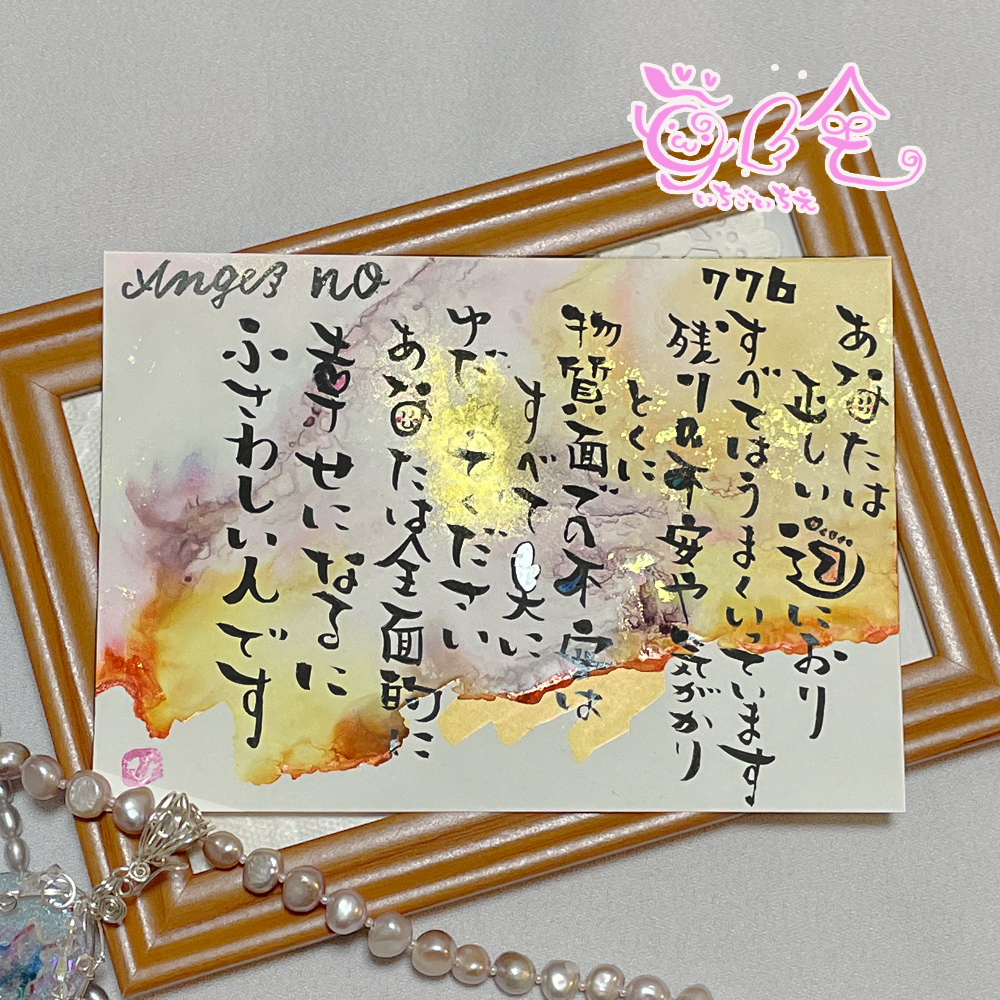 いちごいちえ
Angel no 776
あなたは
正しい道におり
すべてはうまくいっています
残りの不安や気がかり
とくに
物質面での不安は
すべて天に
ゆだねてください
あなたは全面的に
幸せになるに
ふさわしいんです